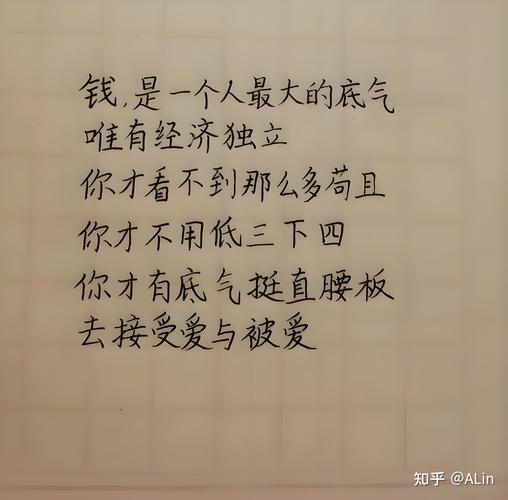 钱,是一个人最大的底气
唯有经济独立
你才看不到那么多苟且
你才不用低三下四
你才有底气挺直腰板
去接受爱与被爱
知乎 @ALin